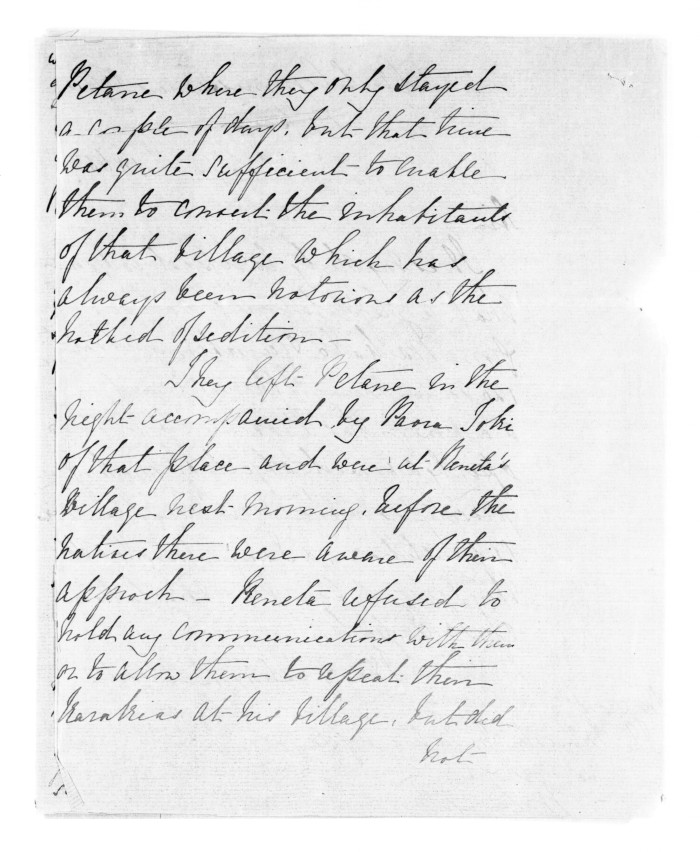 Petane where they only stayed
a couple of days. but that time
was quite sufficient to enable
them to convert the inhabitants
of that village which has
always been notorious as the
hotbed of sedition –
They left Petane in the
night accompanied by Paora Toki
of that place and were at Reneta's
village next morning. before the
natives there were aware of their
approch – Reneta refused to
hold any communications with them
or to allow them to repeat their
Karakias at his village, but did
not